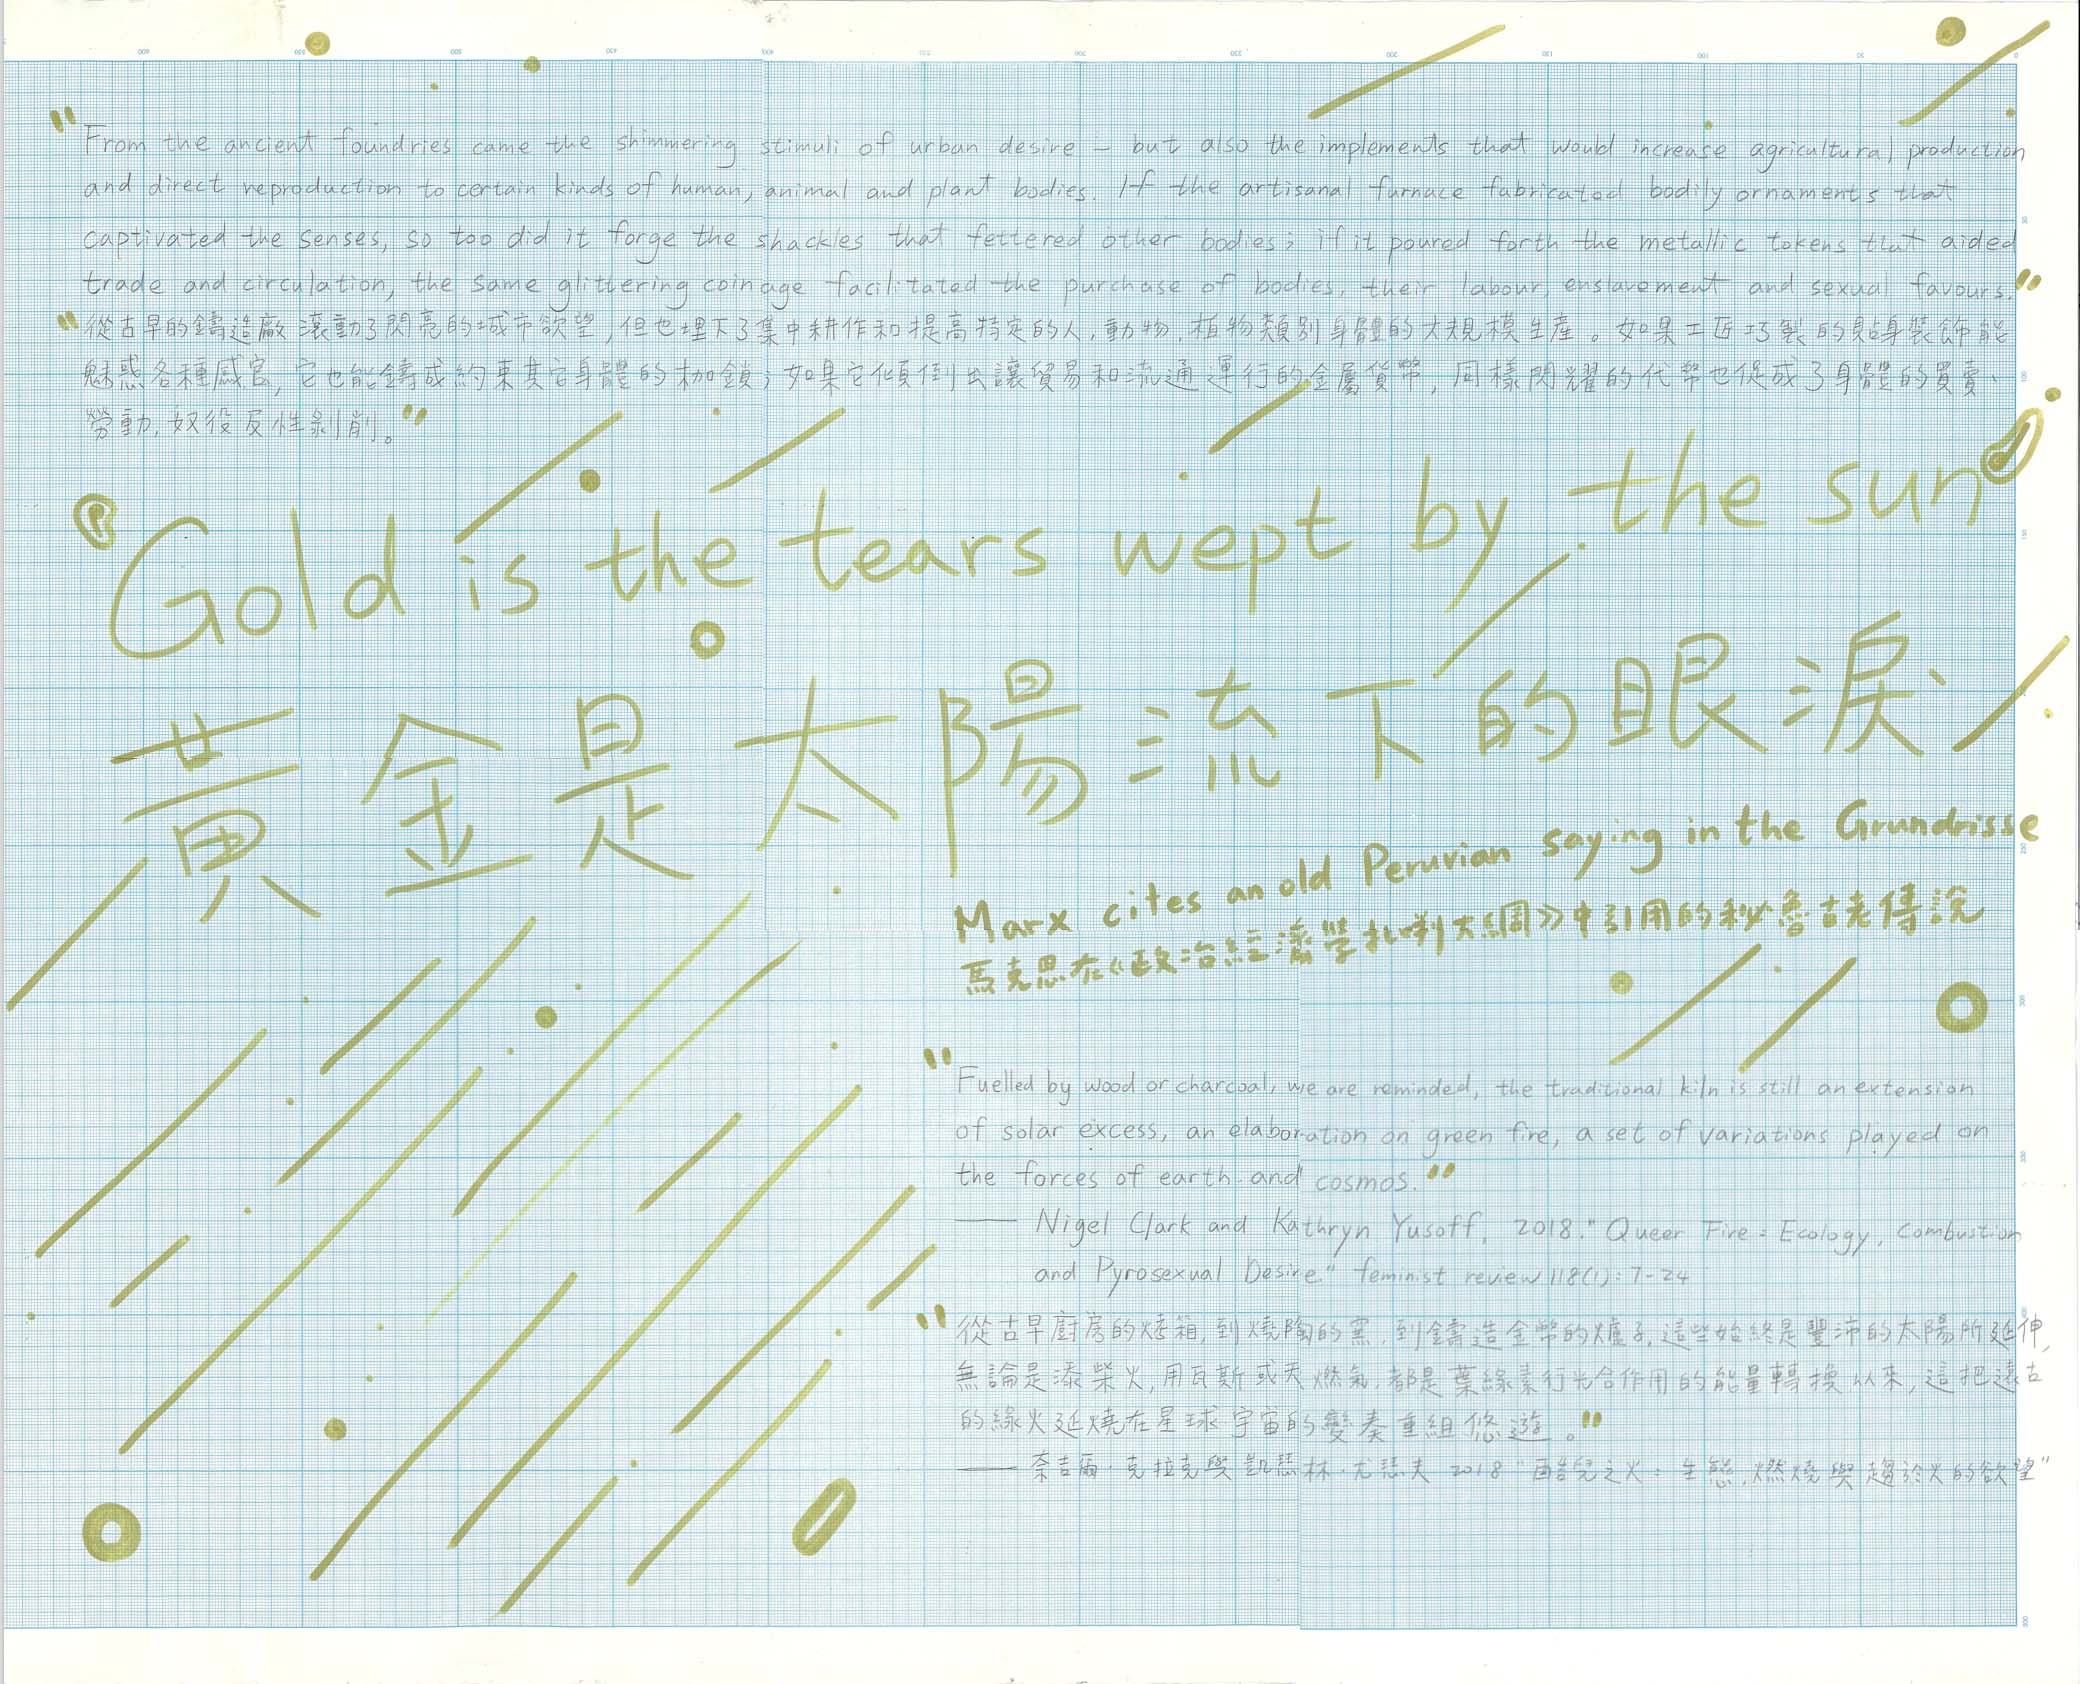 "From the ancient foundries came the shimmering stimuli of urban desire – but also the implements that would increase agricultural production
and direct reproduction to certain kinds of human, animal and plant bodies. If the artisanal furnace fabricated bodily ornaments that
captivated the senses, so too did it forge the shackles that fettered other bodies; if it poured forth the metallic tokens that aided
trade and circulation, the same glittering coinage facilitated the purchase of bodies, their labour, enslavement and sexual favours."
"從古早的鑄造廠滾動了閃亮的城市欲望,但也埋下了集中耕作和提高特定的人,動物,植物類別身體的大規模生產。如果工匠巧製的貼身裝飾能
魅惑各種感官,它也能鑄成約束其它身體的枷鎖;如果它傾倒出讓貿易和流通運行的金屬貨幣,同樣閃耀的代幣也促成了身體的買賣
勞動,奴役及性剝削。"
Gold is the tears wept by the sun
黃金是太陽流下的眼淚
Marx cites an old Peruvian saying in the Grundrisse
馬克思在《政治經濟學批判大綱》中引用的秘魯古老傳說
"Fuelled by wood or charcoal, we are reminded, the traditional kiln is still an extension
of solar excess, an elaboration on green fire, a set of variations played on
the forces of earth and cosmos."
—— Nigel Clark and Kathryn Yusoff, 2018. "Queer Fire: Ecology, Combustion
and Pyrosexual Desire." feminist review 118(1): 7-24
"從古早廚房的烤箱,到燒陶的窯,到鑄造金幣的爐子,這些始終是豐沛的太陽所延伸,
無論是添柴火,用瓦斯或天燃氣,都是葉綠素行光合作用的能量轉換以來,這把遠古
的綠火延燒在星球宇宙的變奏重組悠遊。"
—— 奈吉爾·克拉克與凱瑟林·尤瑟夫 2018 "酷兒之火:生態,燃燒與趨於火的欲望"
600
550
500
450
400
350
300
250
200
150
100
50
0
50
100
150
200
250
300
350
400
500